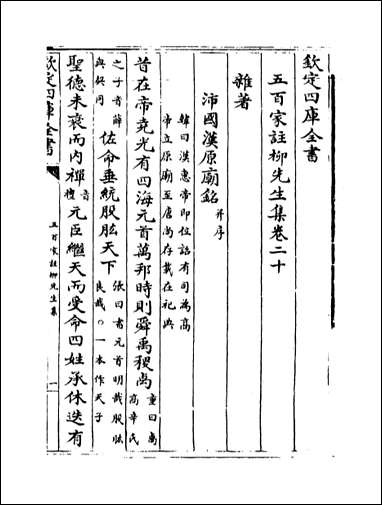 欽定四庫全書
五百家註柳先生集卷二十
雜著
沛國漢原廟銘并序
韓曰漢惠帝即位詔有司為高
帝立原廟至唐尚存載在祀典
昔在帝堯光有四海元首萬邦時則舜禹稷卨童曰卨高辛氏
之子音薛與契同佐命垂統股肱天下張曰書元首明哉股肱良哉○一本作天子
聖德未衰而內禪音擅元臣繼天而受命四姓承休迭有
欽定四庫全書
五百家註柳先生集
一